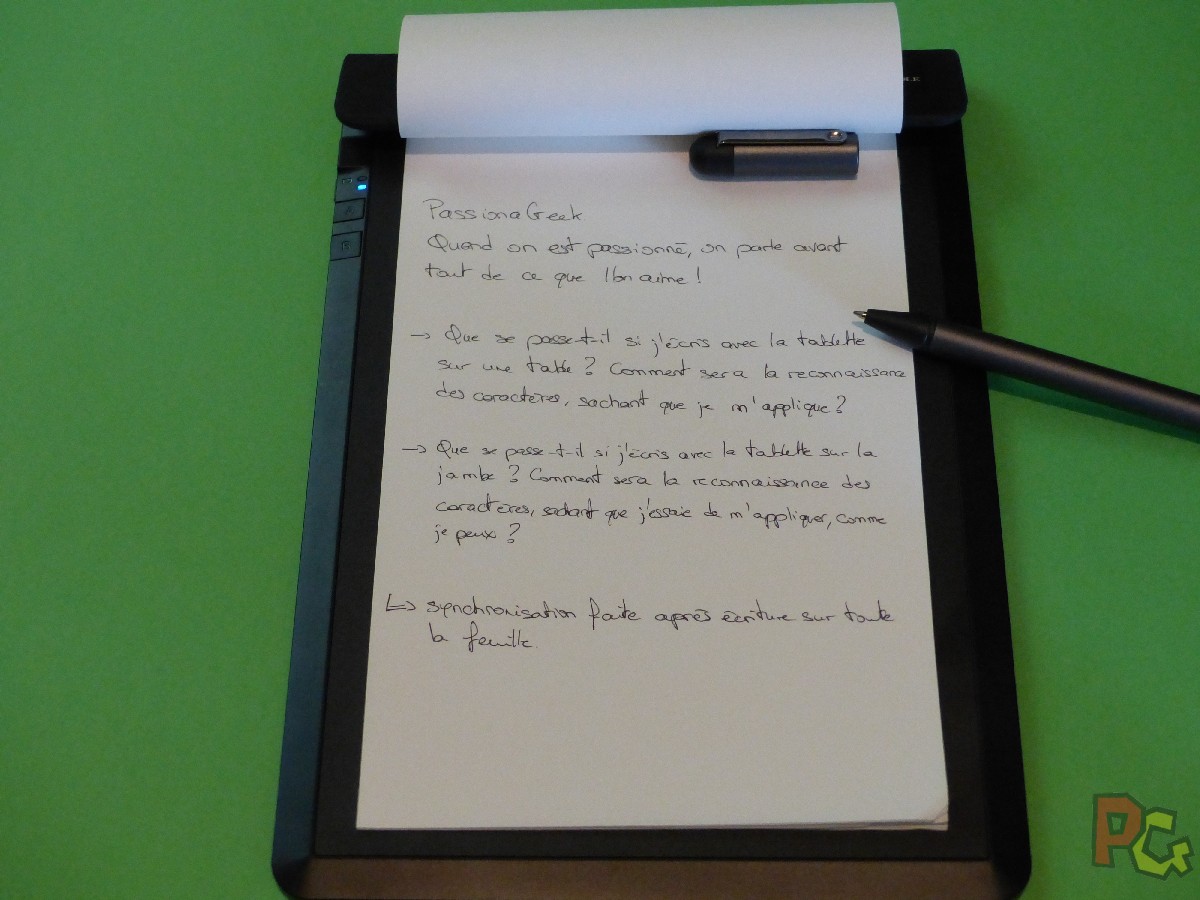 PassionaGeek
Quand on est passionné, on parle avant
tout de ce que l'on aime !
→ Que se passe-t-il si j'écris avec la tablette
sur une table ? Comment sera la reconnaissance
des caractères, sachant que je m'applique ?
→ Que se passe-t-il si j'écris avec la tablette sur la
jambe ? Comment sera la reconnaissance des
caractères, sachant que j'essaie de m'appliquer, comme
je peux ?
↳ synchronisation faite après écriture sur toute
la feuille.
PG